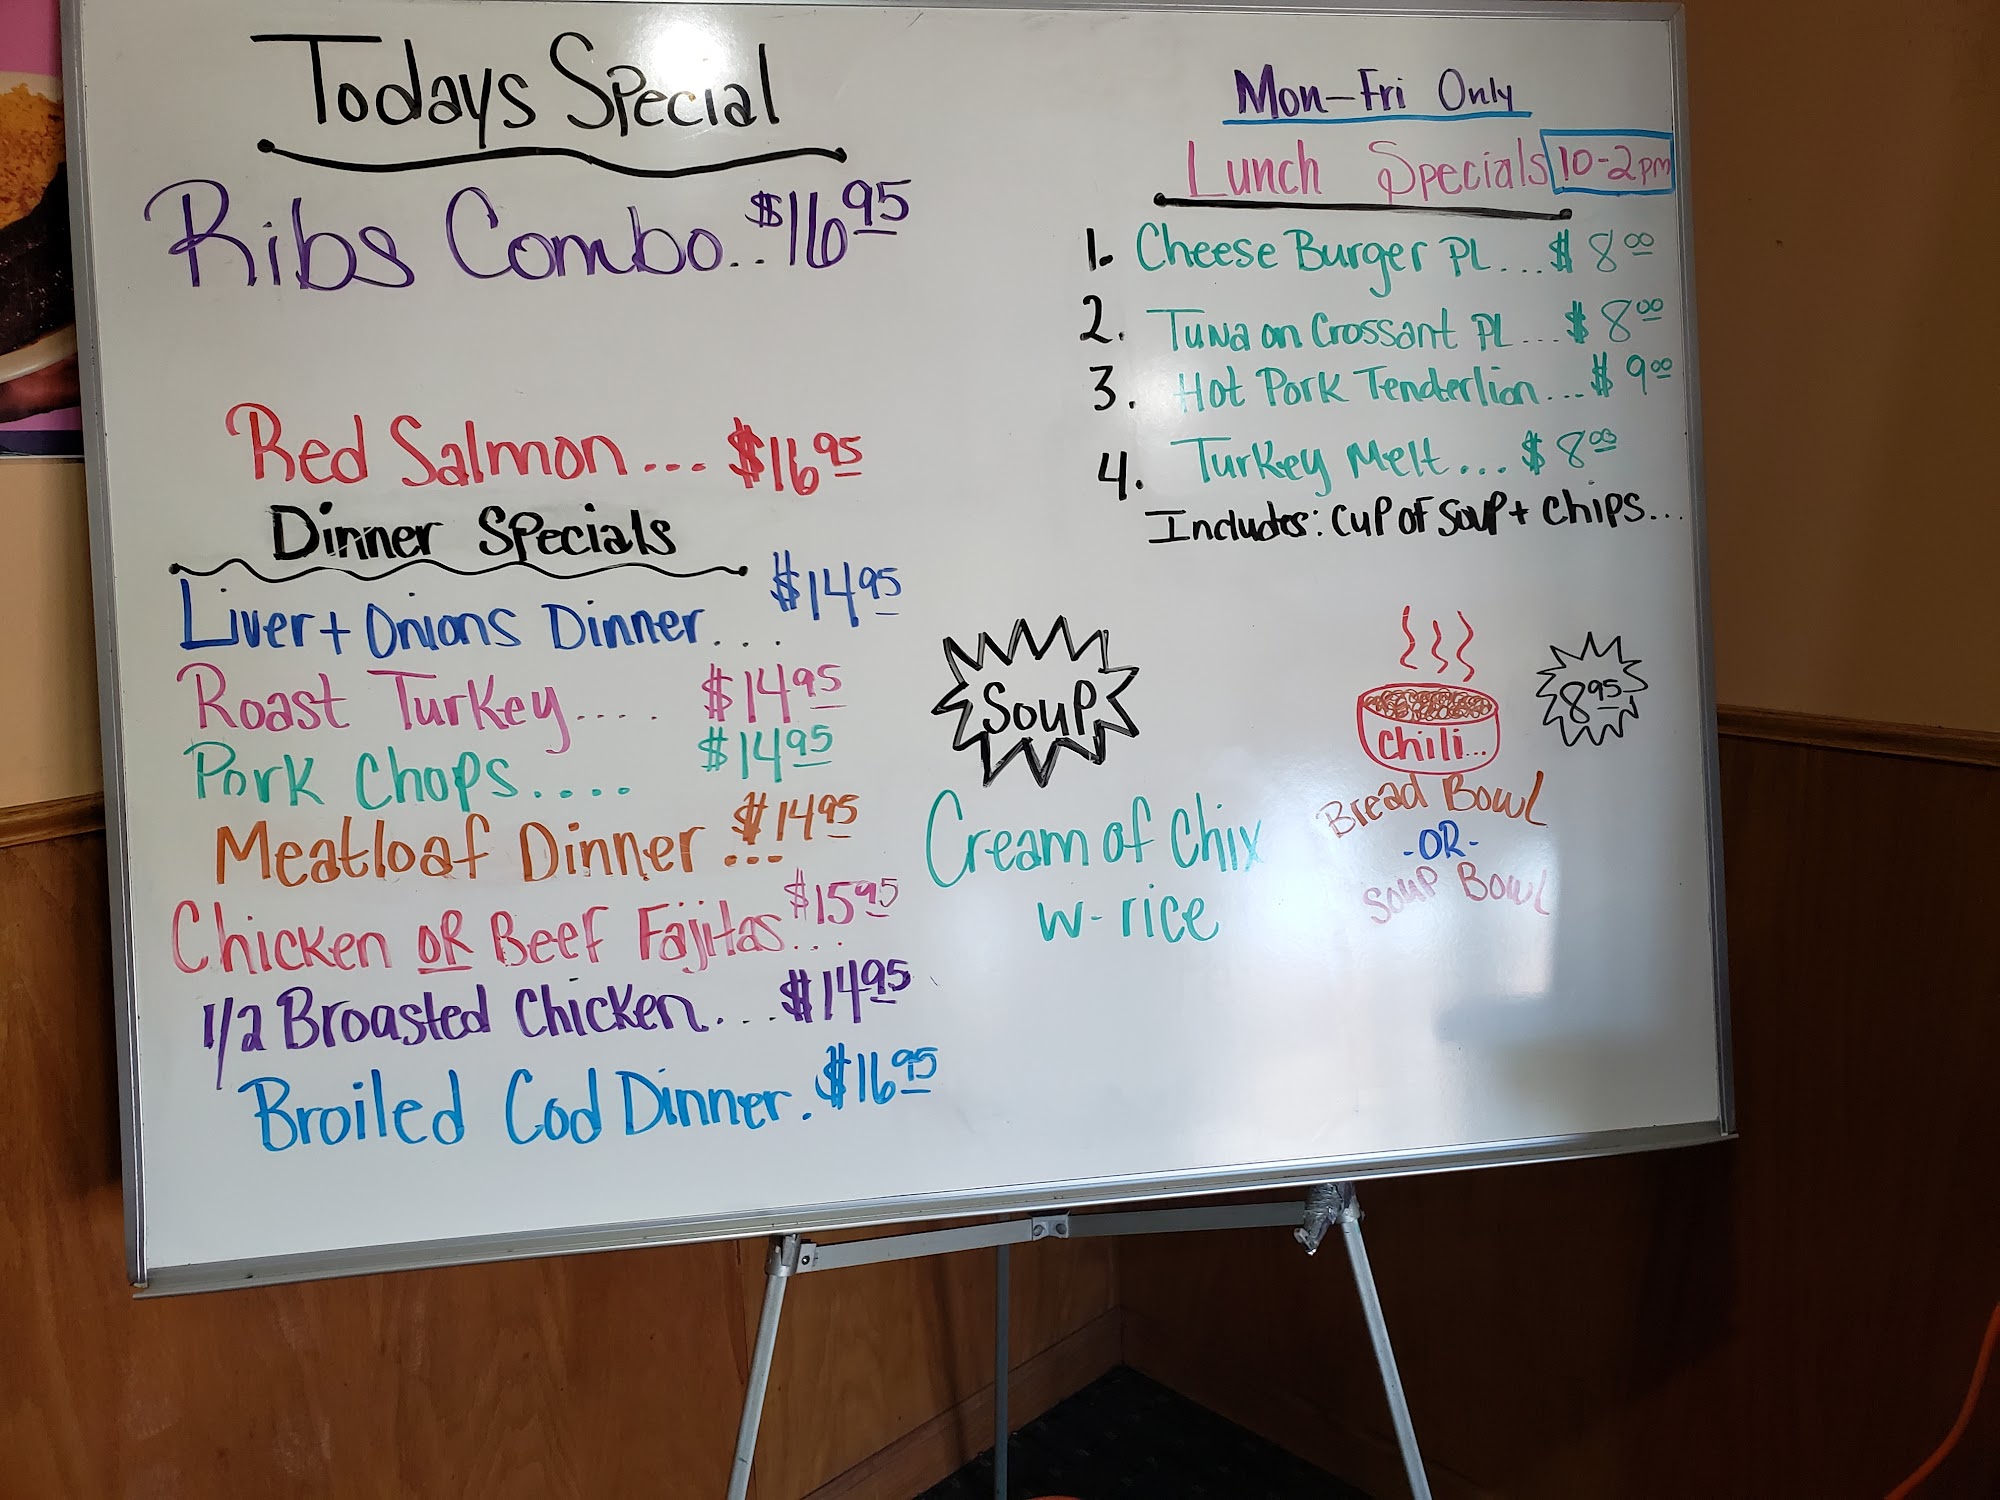 Todays Special
Ribs Combo..$16 95
Red Salmon... $16 95
Dinner Specials
Liver + Onions Dinner... $14 95
Roast Turkey.... $14 95
Pork Chops.... $14 95
Meatloaf Dinner ... $14 95
Chicken OR Beef Fajitas... $15 95
1/2 Broasted Chicken... $14 95
Broiled Cod Dinner. $16 95
Mon-Fri Only
Lunch Specials 10-2pm
1. Cheese Burger PL... $ 8 00
2. Tuna on Crossant PL... $ 8 00
3. Hot Pork Tenderlion... $ 9 00
4. Turkey Melt... $ 8 00
Includes: Cup of Soup + Chips...
Soup
Cream of Chix
w- rice
Chili...
8 95
Bread Bowl
-OR-
Soup Bowl